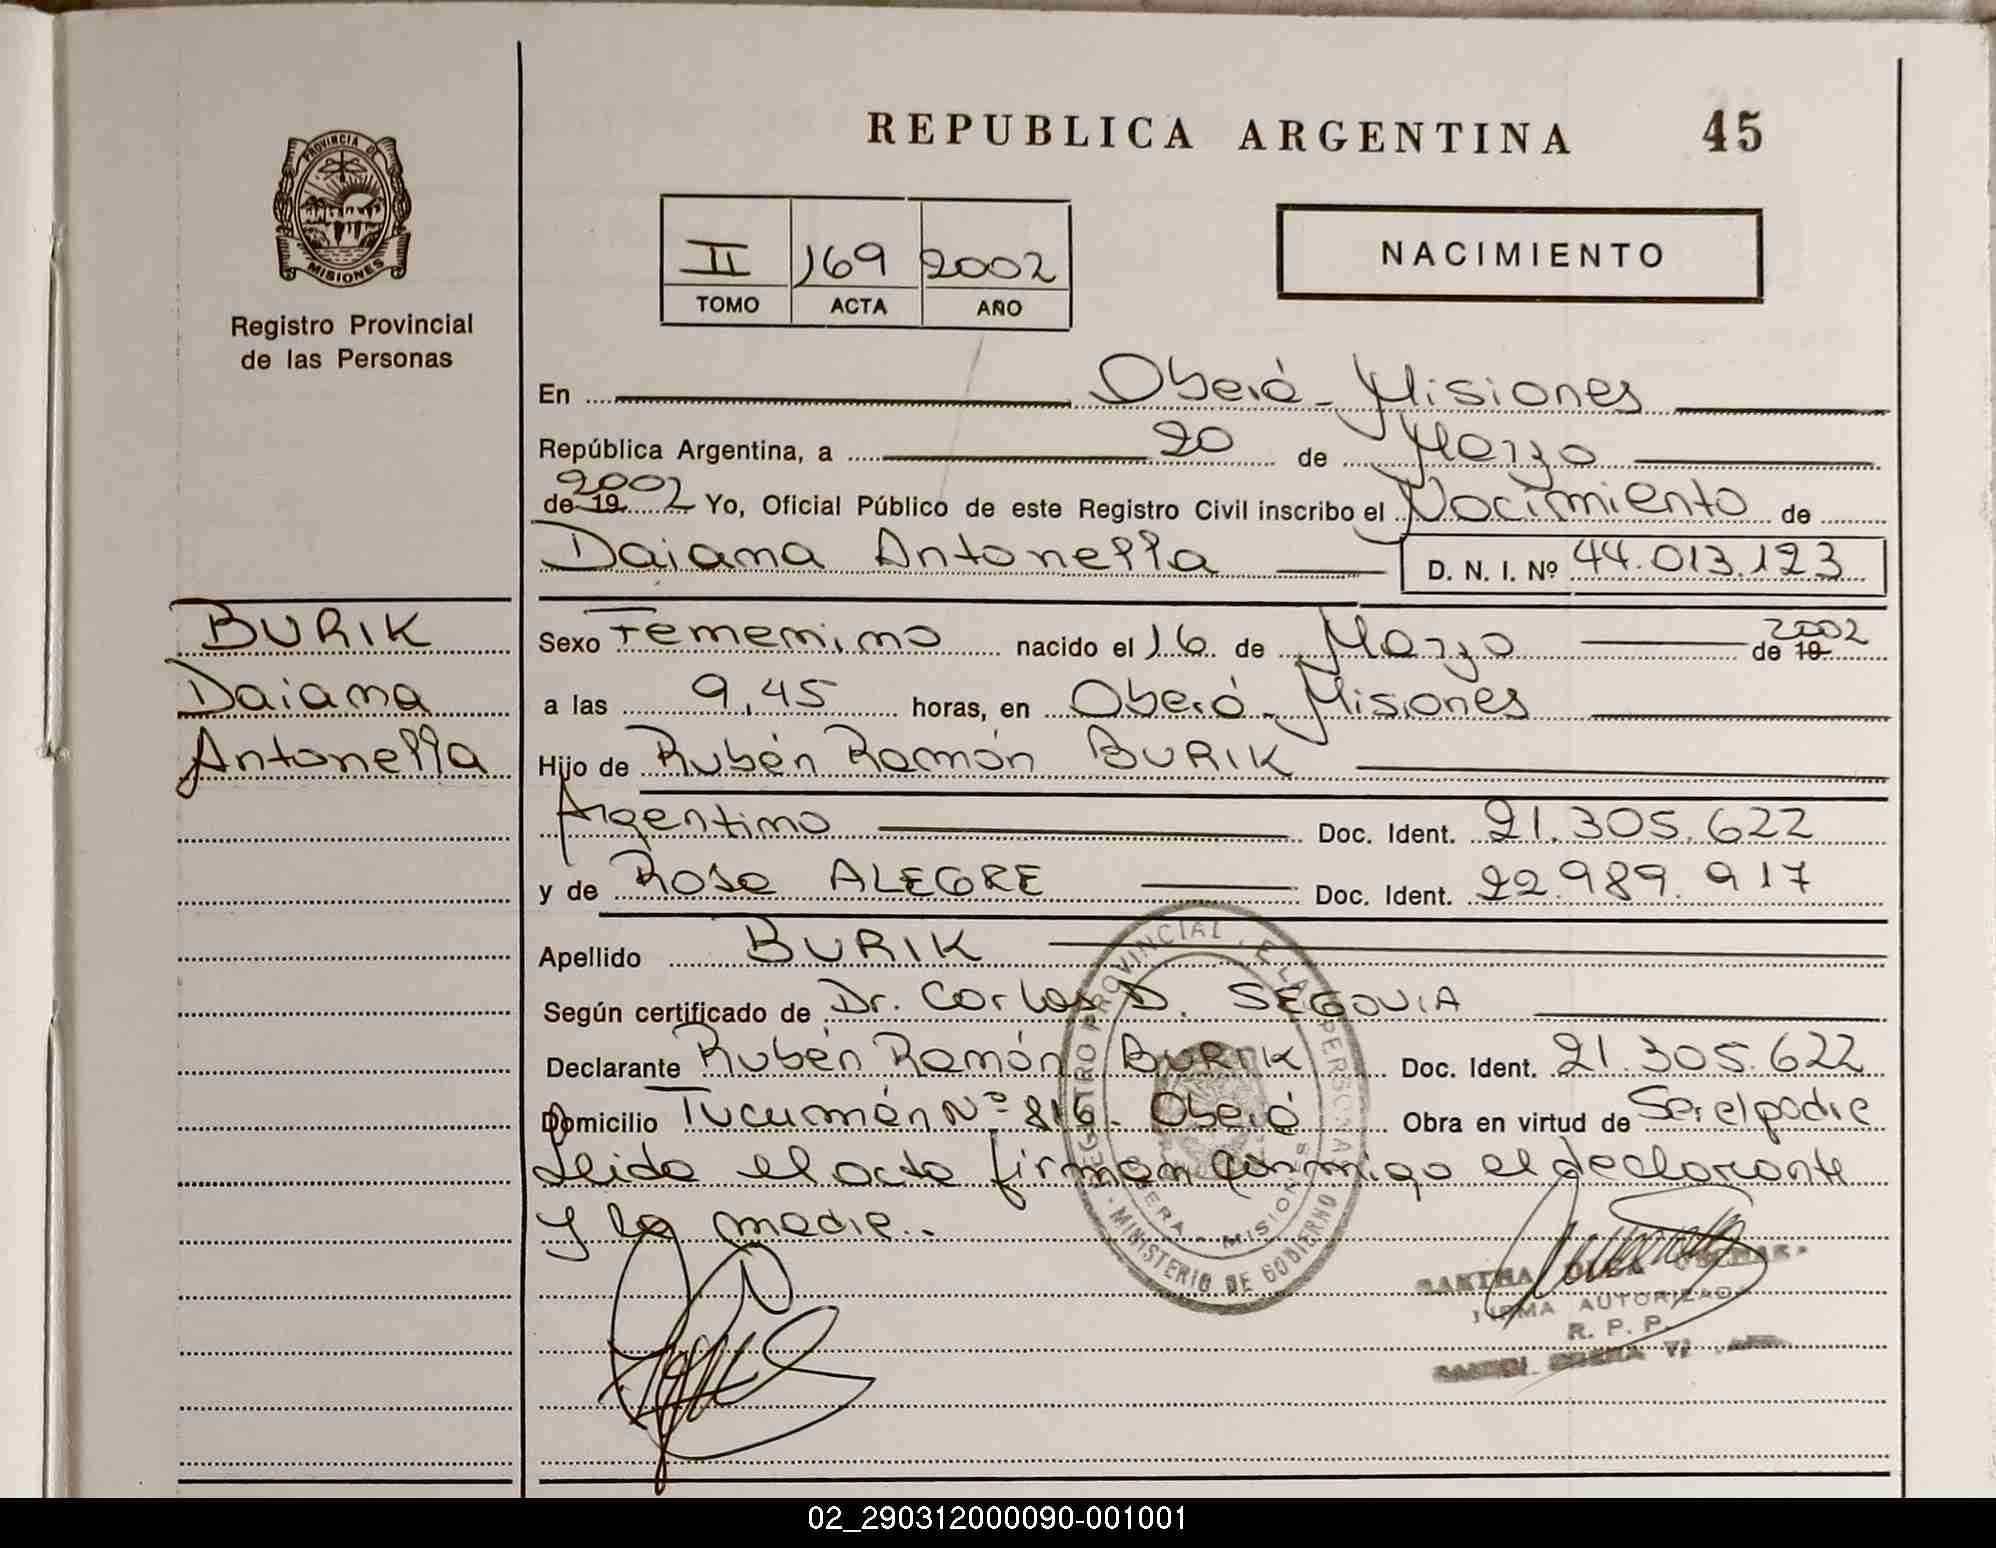 REPUBLICA ARGENTINA 45
PROVINCIA DE
MISIONES
Registro Provincial
de las Personas
II 169 2002
TOMO ACTA AÑO
NACIMIENTO
En Oberá - Misiones
República Argentina, a 20 de Marzo
de 19 2002 Yo, Oficial Público de este Registro Civil inscribo el Nacimiento de
Daiana Antonella D. N. I. Nº 44.013.123
BURIK
Daiana
Antonella
Sexo Femenino nacido el 16 de Marzo de 19 2002
a las 9,45 horas, en Oberá - Misiones
Hijo de Rubén Ramón BURIK
Argentino Doc. Ident. 21.305.622
y de Rosa ALEGRE Doc. Ident. 22.989.917
Apellido BURIK
Según certificado de Dr. Carlos D. SEGOVIA
Declarante Rubén Ramón BURIK Doc. Ident. 21.305.622
Domicilio Tucumán Nº 816. Oberá Obra en virtud de Ser el padre
Leida el acta firman conmigo el declarante
y la madre..
REGISTRO PROVINCIAL DE LAS PERSONAS
MINISTERIO DE GOBIERNO
MISIONES
FIRMA AUTORIZADA
R. P. P.
02_290312000090-001001